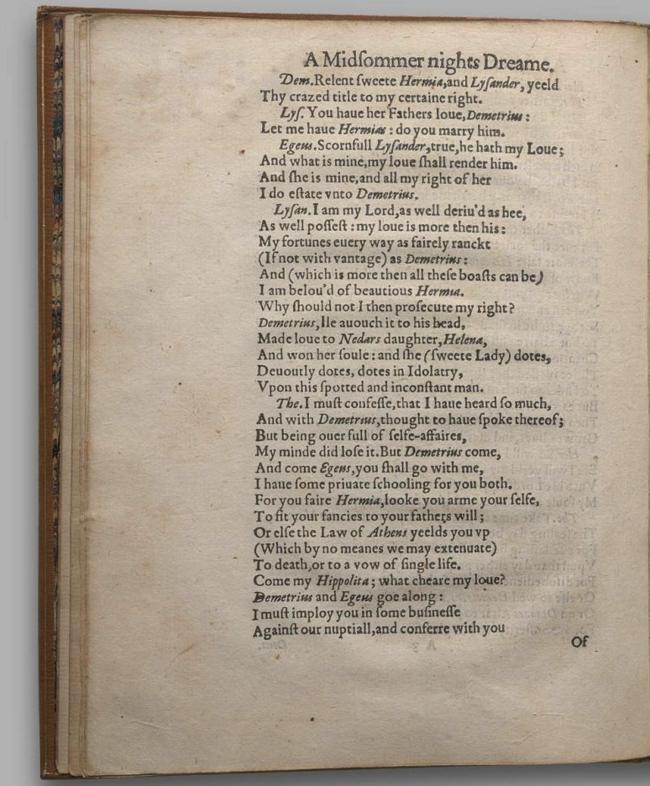 A Midſommer nights Dreame.
Dem. Relent ſweete Hermia, and Lyſander, yeeld
Thy crazed title to my certaine right.
Lyſ. You haue her Fathers loue, Demetrius:
Let me haue Hermias: do you marry him.
Egeus. Scornfull Lyſander, true, he hath my Loue;
And what is mine, my loue ſhall render him.
And ſhe is mine, and all my right of her
I do eſtate vnto Demetrius.
Lyſan. I am my Lord, as well deriu'd as hee,
As well poſſeſt: my loue is more then his:
My fortunes euery way as fairely ranckt
(If not with vantage) as Demetrius:
And (which is more then all theſe boaſts can be)
I am belou'd of beautious Hermia.
Why ſhould not I then proſecute my right?
Demetrius, Ile auouch it to his head,
Made loue to Nedars daughter, Helena,
And won her ſoule: and ſhe (ſweete Lady) dotes,
Deuoutly dotes, dotes in Idolatry,
Vpon this ſpotted and inconſtant man.
The. I muſt confeſſe, that I haue heard ſo much,
And with Demetrius, thought to haue ſpoke thereof;
But being ouer full of ſelfe-affaires,
My minde did loſe it. But Demetrius come,
And come Egeus, you ſhall go with me,
I haue ſome priuate ſchooling for you both.
For you faire Hermia, looke you arme your ſelfe,
To fit your fancies to your fathers will;
Or elſe the Law of Athens yeelds you vp
(Which by no meanes we may extenuate)
To death, or to a vow of ſingle life.
Come my Hippolita; what cheare my loue?
Demetrius and Egeus goe along:
I muſt imploy you in ſome buſineſſe
Againſt our nuptiall, and conferre with you
Of